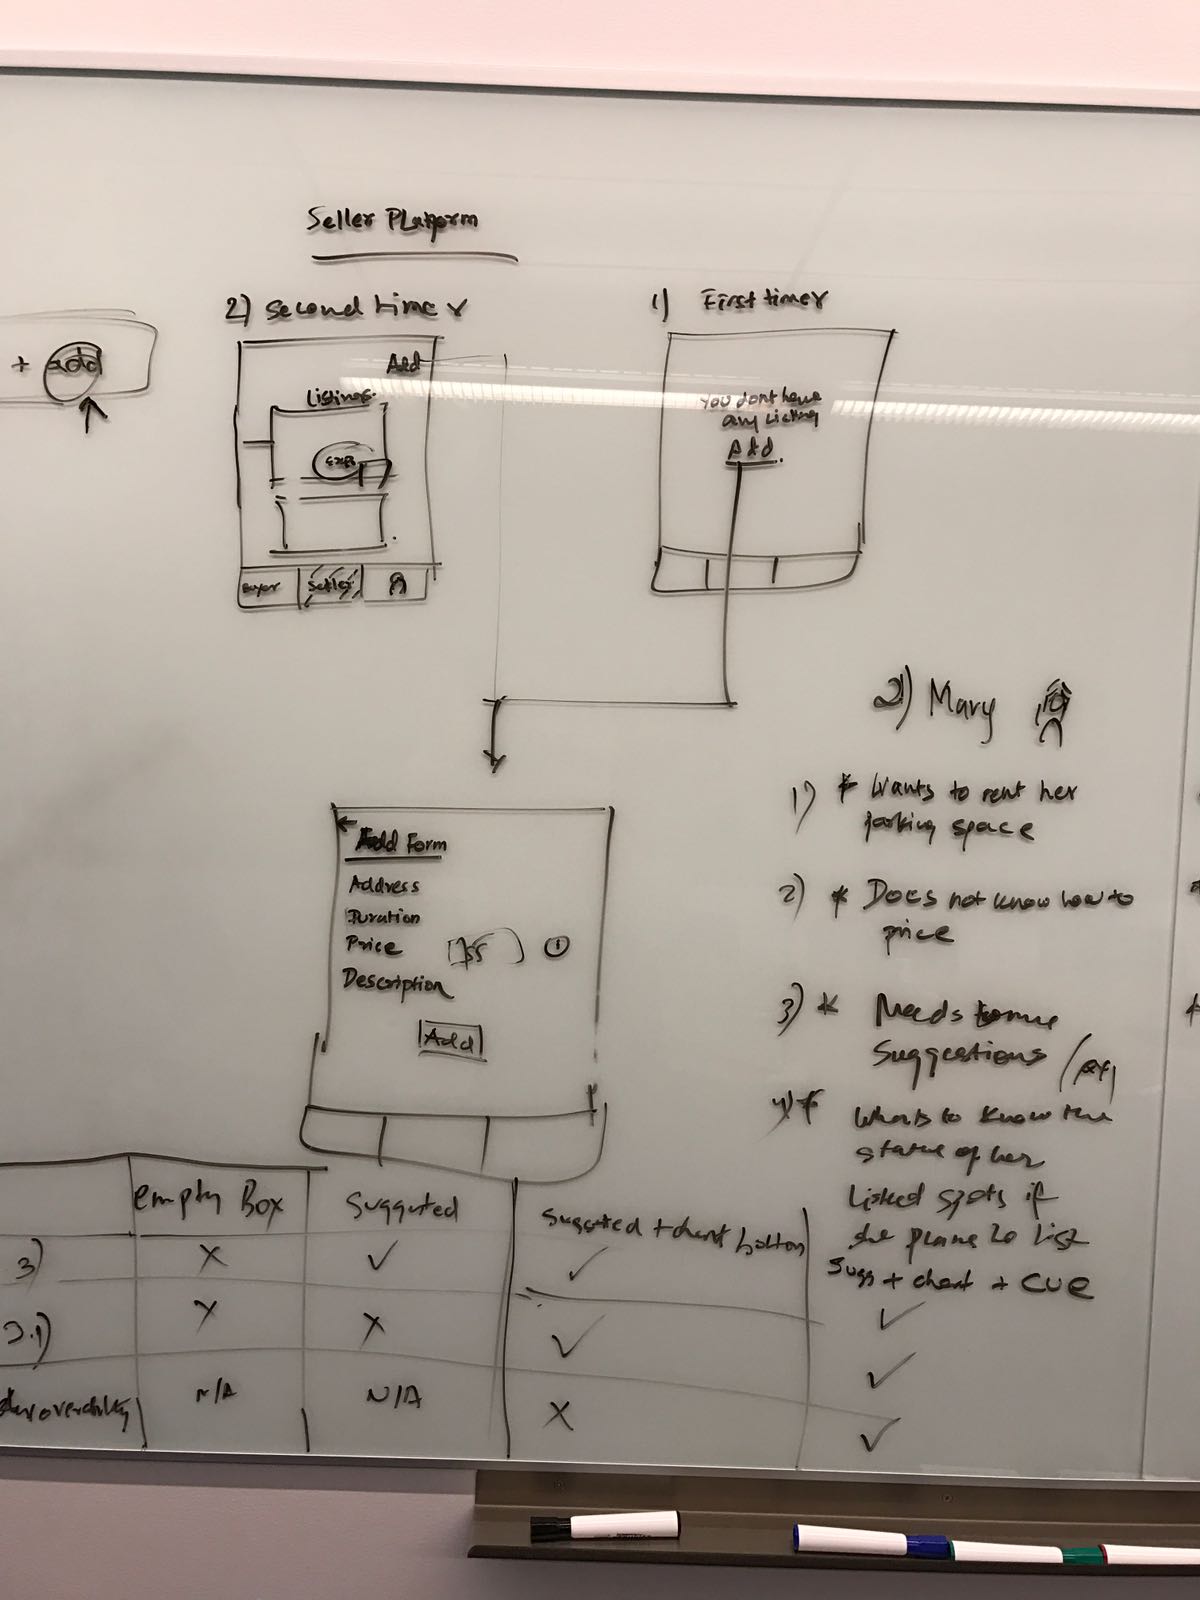 Seller Platform
2) Second timer
1) First timer
+ add
Add
Listings.
Buyer
Seller
You dont have
any Listing
Add.
Add Form
Address
Duration
Price
Description
Add
2) Mary
1) * Wants to rent her
parking space
2) * Does not know how to
price
3) * Needs some
suggestions
4) * Wants to know the
status of her
Listed spots if
she plans to list
empty Box
Suggested
Suggested + chart button
Sugg + chart + CUE
3) X ✓ ✓ ✓
3.1) X X ✓ ✓
N/A N/A X ✓